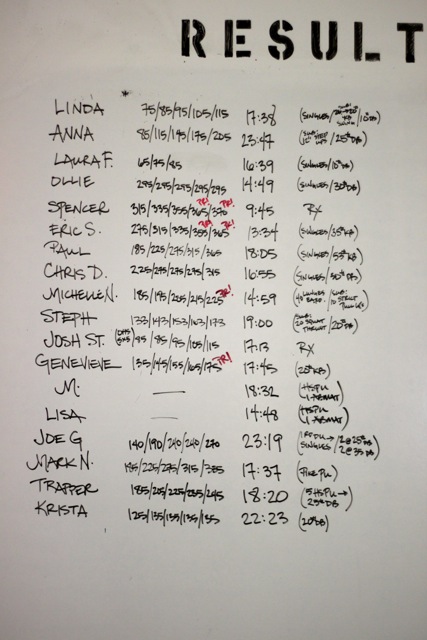 RESULT
LINDA 75/85/95/105/115 17:38 (SINGLES/ /10#DB)
ANNA 85/115/145/175/205 23:47 /25#DB)
LAURA F. 65/75/85 16:39 (SINGLES/10#DB)
OLLIE 295/295/295/295/295 14:49 (SINGLES/30#DB)
SPENCER 315/335/355/365/370 PR! PR! 9:45 RX
ERIC S. 275/315/335/355/365 PR! PR! 13:34 (SINGLES/35#KB)
PAUL 185/225/275/315/365 18:05 (SINGLES/53#KB)
CHRIS D. 225/275/275/275/315 16:55 (SINGLES/50#DB)
MICHELLE N. 185/195/205/215/225 PR! 14:59
STEPH 133/143/153/163/173 19:00 (SUB: 20 SQUAT THRUST/20#DB)
JOSH ST. 95/95/95/105/115 17:13 RX
GENEVIEVE 135/145/155/165/175 PR! 17:45 (20#KB)
M. — 18:32 (HSPU 1 ABMAT)
LISA — 14:48 (HSPU 1 ABMAT)
JOE G 140/190/240/240/270 23:19 SINGLES/ 2@25#DB 2@35DB)
MARK N. 185/225/275/315/385 17:37 (PIKE PU)
TRAPPER 185/205/225/235/245 18:20 (5 HSPU→ 25#DB)
KRISTA 125/135/135/135/135 22:23 (20#DB)